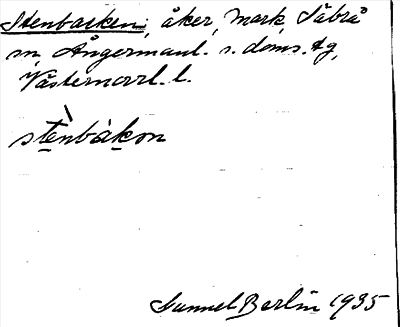 Stenbacken, åker, Mark, Säbrå
sn, Ångermanl. s. doms. tg,
Västernorrl. l.
stènbàkɷn
Gunnel Berlin 1935